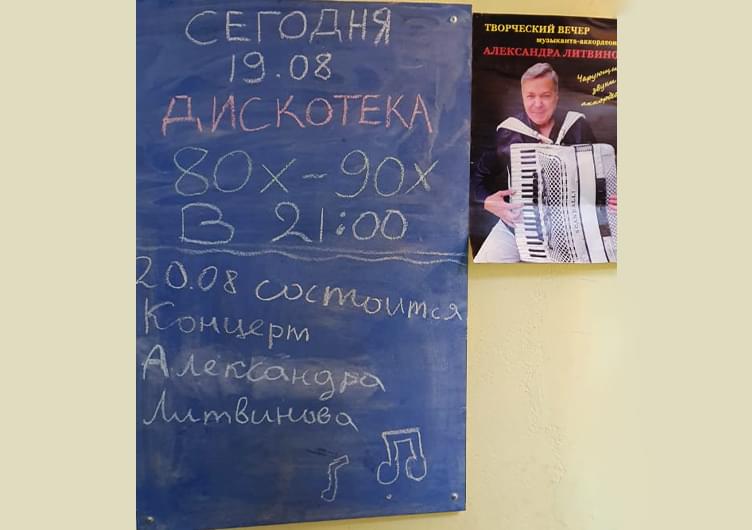 СЕГОДНЯ
19.08
ДИСКОТЕКА
80х-90х
В 21:00
20.08 состоится
Концерт
Александра
Литвинова
ТВОРЧЕСКИЙ ВЕЧЕР
музыканта-аккордеон
АЛЕКСАНДРА ЛИТВИНО
Чарующи
звуки
аккорде